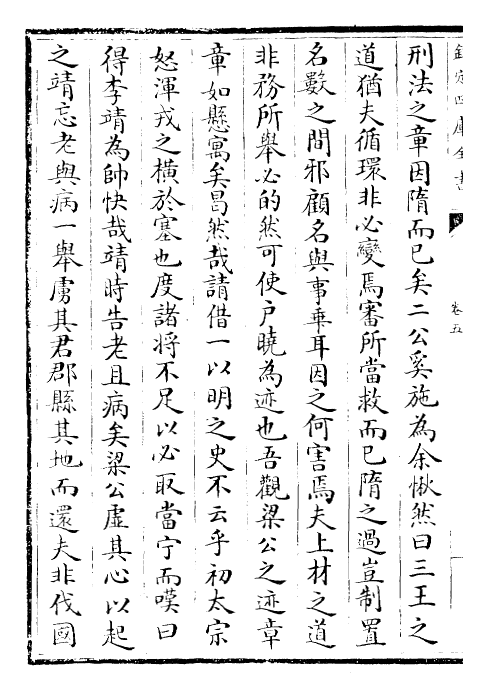 欽定四庫全書
卷五
刑法之章因隋而已矣二公奚施為余愀然曰三王之
道猶夫循環非必變焉審所當救而已隋之過豈制置
名數之間邪顧名與事乖耳因之何害焉夫上材之道
非務所舉必的然可使戶曉為迹也吾觀梁公之迹章
章如懸㝢矣曷然哉請借一以明之史不云乎初太宗
怒渾戎之橫於塞也度諸將不足以必取當宁而嘆曰
得李靖為帥快哉靖時告老且病矣梁公虛其心以起
之靖忘老與病一舉虜其君郡縣其地而還夫非伐國